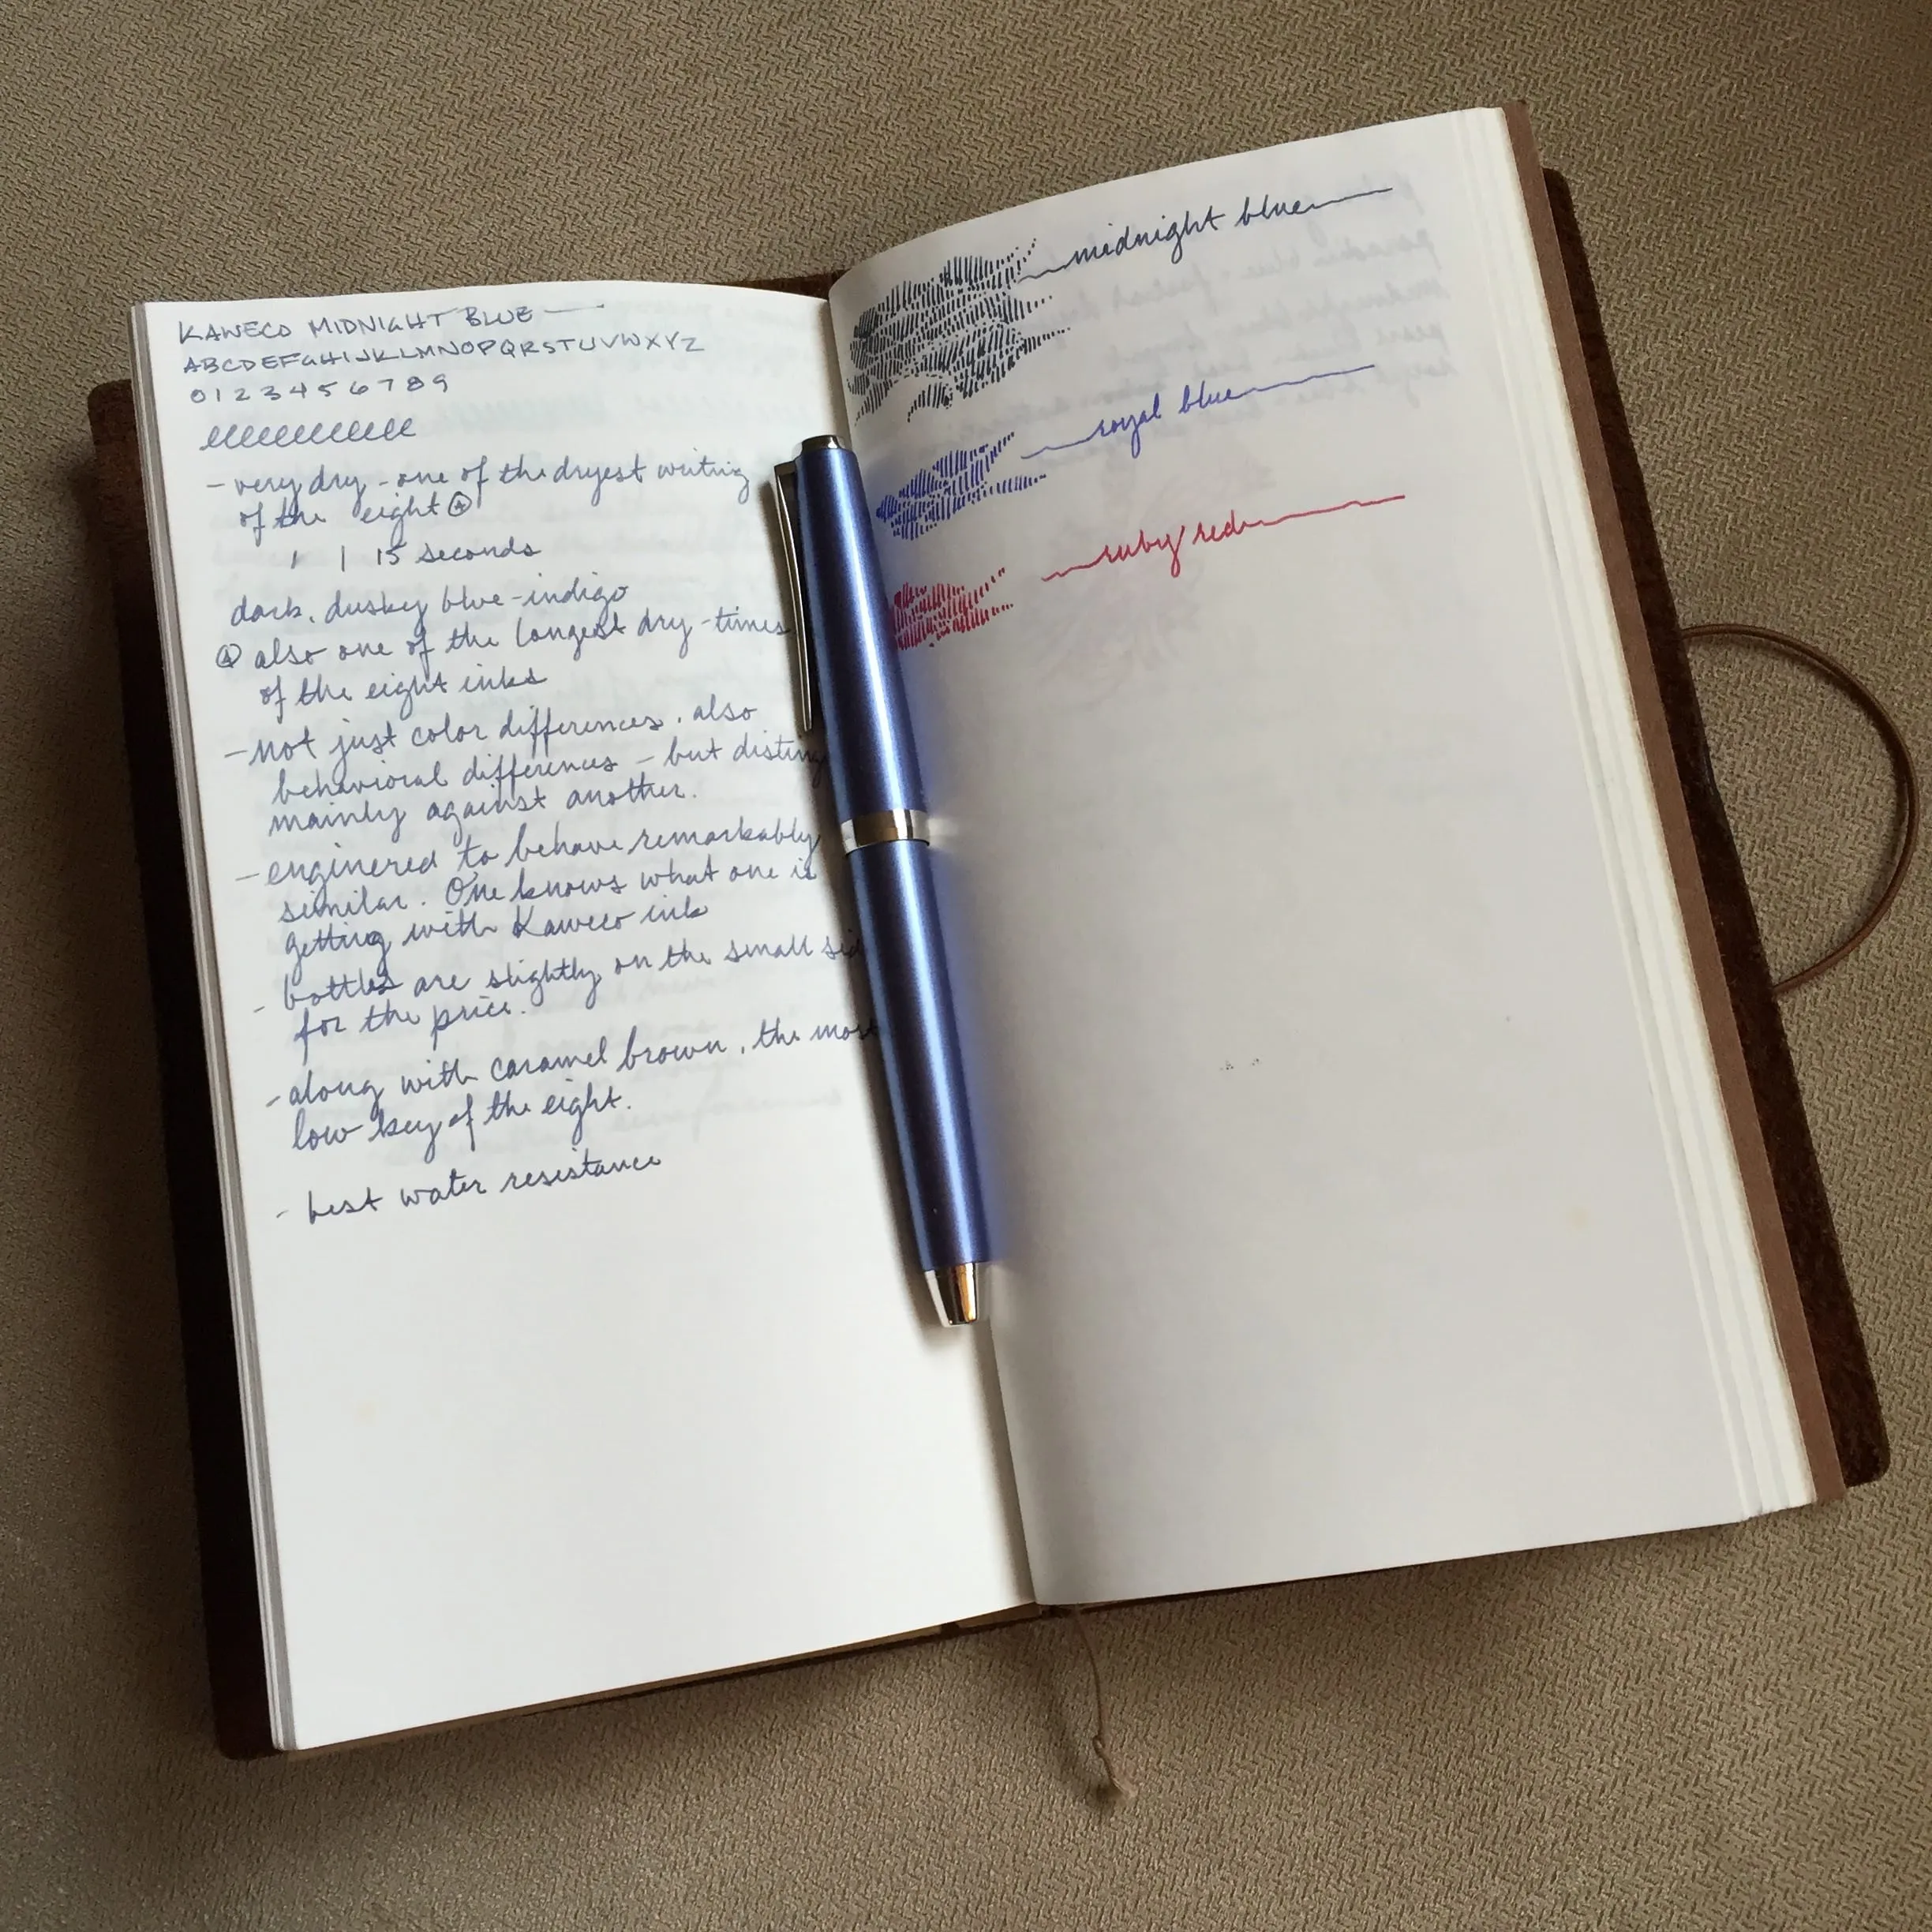 KAWECO MIDNIGHT BLUE
ABCDEFGHIJKLMNOPQRSTUVWXYZ
0123456789
- very dry - one of the dryest writing
of the eight Ⓐ
' | 15 seconds
dark, dusky blue-indigo
Ⓐ also one of the longest dry-times
of the eight inks
- not just color differences, also
behavioral differences - but
mainly against another.
- enginered to behave remarkably
similar. One knows what one is
getting with Kaweco ink
- bottles are slightly on the small
for the price.
- along with caramel brown, the most
low key of the eight.
- best water resistance
midnight blue
royal blue
ruby red